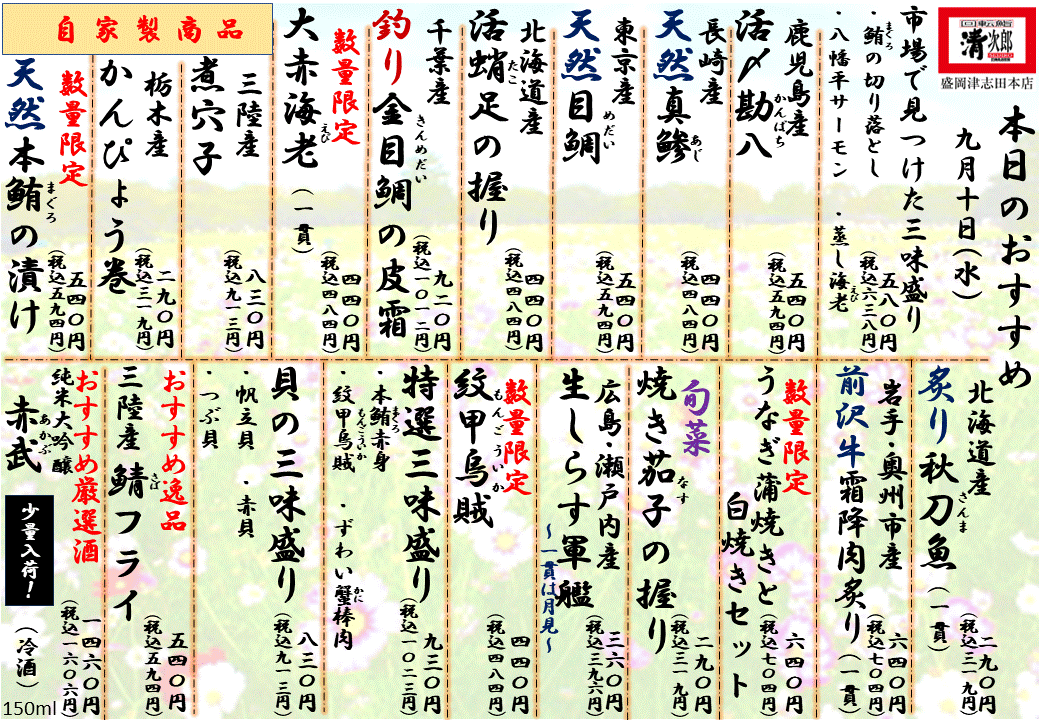 回転鮨
清次郎
盛岡津志田本店
本日のおすすめ
九月十日(水)
市場で見つけた三味盛り
・鮪の切り落とし
まぐろ
・八幡平サーモン ・蒸し海老
えび
五八〇円
(税込六三八円)
鹿児島産
活〆勘八
かんぱち
五四〇円
(税込五九四円)
長崎産
天然真鯵
あじ
四四〇円
(税込四八四円)
東京産
天然目鯛
めだい
五四〇円
(税込五九四円)
北海道産
活蛸足の握り
たこ
四四〇円
(税込四八四円)
千葉産
釣り金目鯛の皮霜
きんめだい
九二〇円
(税込一〇一二円)
数量限定
大赤海老(一貫)
えび
四四〇円
(税込四八四円)
自家製商品
三陸産
煮穴子
八三〇円
(税込九一三円)
栃木産
かんぴょう巻
二九〇円
(税込三一九円)
数量限定
天然本鮪の漬け
まぐろ
五四〇円
(税込五九四円)
北海道産
炙り秋刀魚(一貫)
さんま
二九〇円
(税込三一九円)
岩手・奥州市産
前沢牛霜降肉炙り(一貫)
六四〇円
(税込七〇四円)
数量限定
うなぎ蒲焼きと
白焼きセット
六四〇円
(税込七〇四円)
旬菜
焼き茄子の握り
なす
二九〇円
(税込三一九円)
広島・瀬戸内産
生しらす軍艦
~一貫は月見~
三六〇円
(税込三九六円)
数量限定
紋甲烏賊
もんごういか
四四〇円
(税込四八四円)
特選三味盛り
・本鮪赤身
まぐろ
・紋甲烏賊 ・ずわい蟹棒肉
もんごういか
かに
九三〇円
(税込一〇二三円)
貝の三味盛り
・帆立貝 ・赤貝
・つぶ貝
八三〇円
(税込九一三円)
おすすめ逸品
三陸産 鯖フライ
さば
五四〇円
(税込五九四円)
おすすめ厳選酒
純米大吟醸
赤武
あかぶ
少量入荷!
(冷酒)
一四六〇円
(税込一六〇六円)
150ml